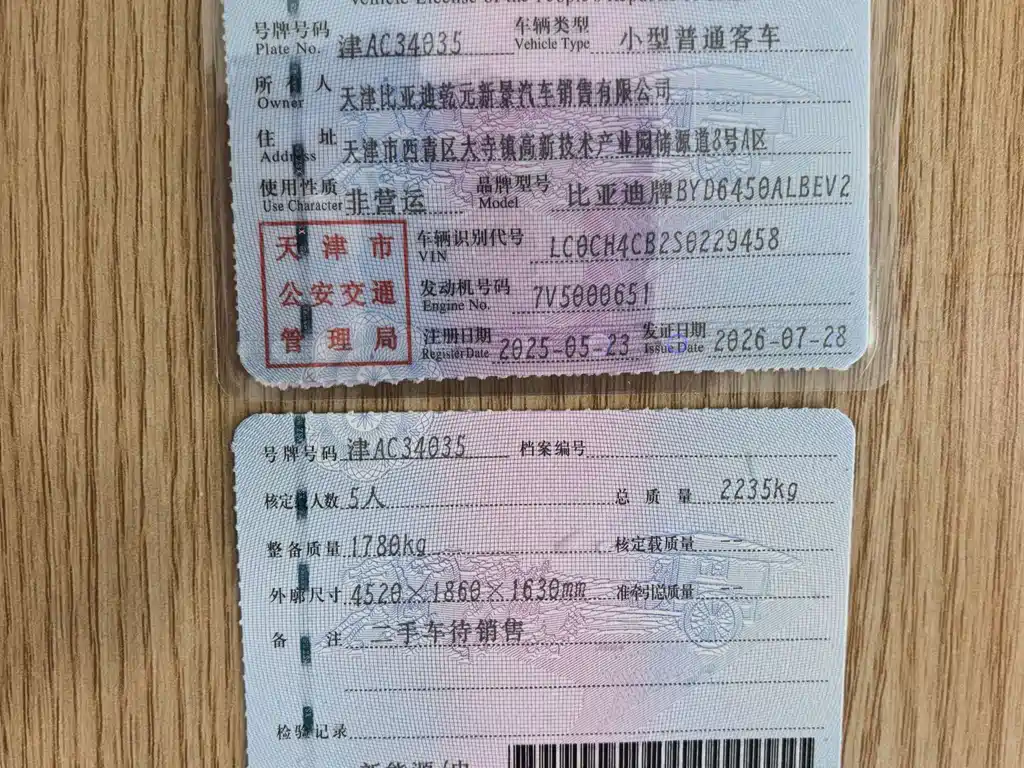 Vehicle License of the People's Republic of
号牌号码 Plate No. 津AC34035 车辆类型 Vehicle Type 小型普通客车
所有人 Owner 天津比亚迪乾元新景汽车销售有限公司
住址 Address 天津市西青区大寺镇高新技术产业园储源道8号A区
使用性质 Use Character 非营运 品牌型号 Model 比亚迪牌BYD6450ALBEV2
天津市
公安交通
管理局
车辆识别代号 VIN LC0CH4CB2S0229458
发动机号码 Engine No. 7V5000651
注册日期 Register Date 2025-05-23 发证日期 Issue Date 2026-07-28
号牌号码 津AC34035 档案编号
核定载人数 5人 总质量 2235kg
整备质量 1780kg 核定载质量 --
外廓尺寸 4520×1860×1630mm 准牵引总质量 --
备注 二手车待销售
检验记录